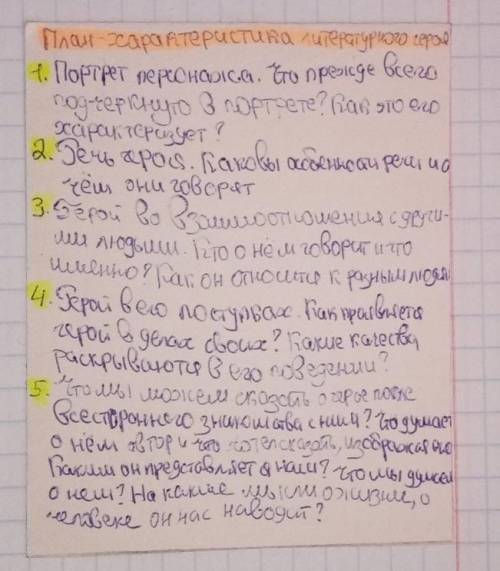 План-характеристика литературного героя
1. Портрет персонажа. Что прежде всего
подчеркнуто в портрете? Как это его
характеризует?
2. Речь героя. Каковы особенности речи и о
чём они говорят
3. Герой во взаимоотношения с други-
ми людьми. Кто о нём говорит и что
именно? Как он относится к разным людям
4. Герой в его поступках. Как проявляется
герой в делах своих? Какие качества
раскрываются в его поведении?
5. Что мы можем сказать о герое после
всестороннего знакомства с ним? Что думает
о нём автор и что хотел сказать, изображая его
Каким он представляется нам? Что мы думаем
о нем? На какие мысли о жизни, о
человеке он нас наводит?